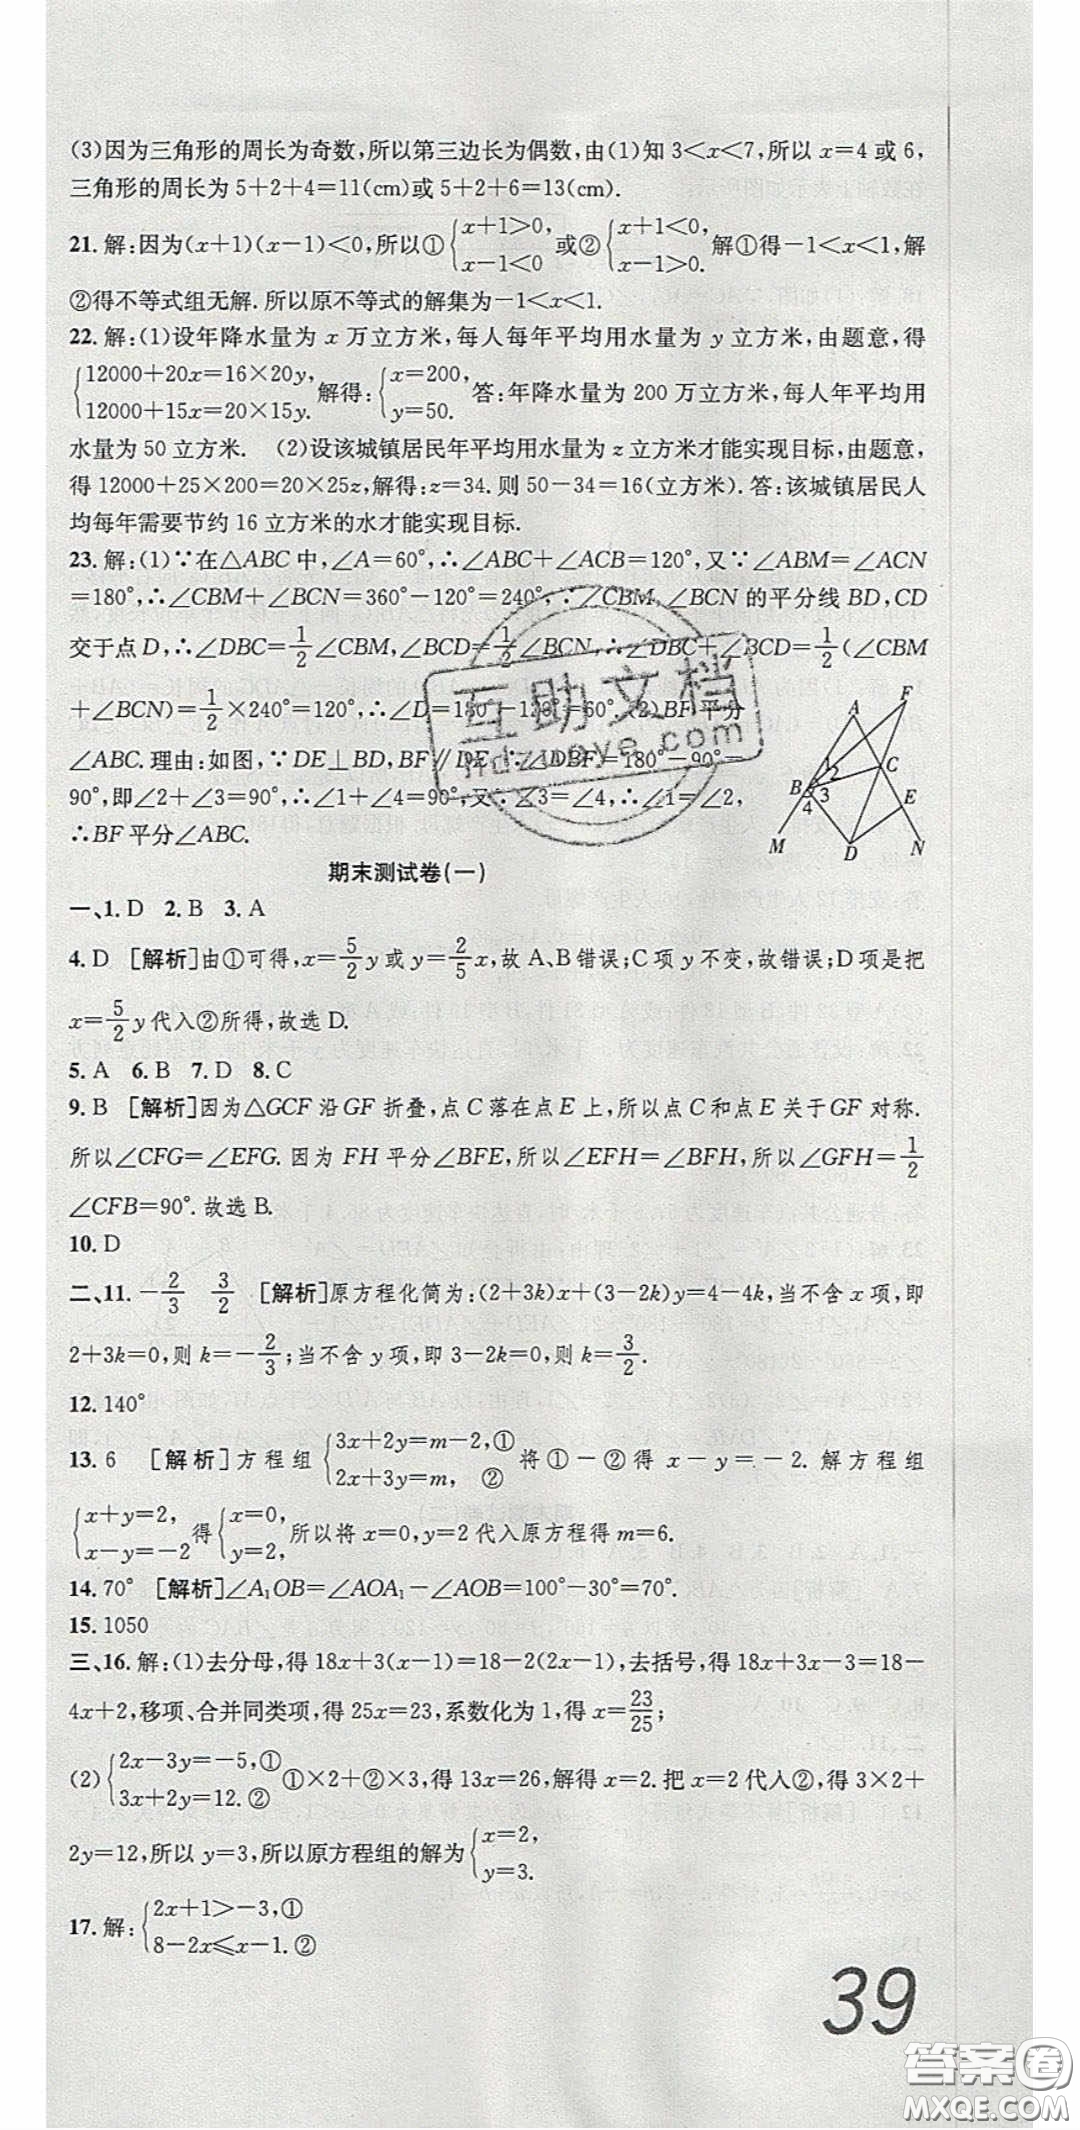 (3)因为三角形的周长为奇数,所以第三边长为偶数,由(1)知 3<x<7,所以 x=4 或 6,
三角形的周长为 5+2+4=11(cm)或 5+2+6=13(cm).
21. 解:因为(x+1)(x-1)<0,所以①{x+1>0, x-1<0 或②{x+1<0, x-1>0. 解①得-1<x<1,解
②得不等式组无解.所以原不等式的解集为-1<x<1.
22. 解:(1)设年降水量为 x 万立方米,每人每年平均用水量为 y 立方米,由题意,得
{12000+20x=16×20y, 12000+15x=20×15y. 解得:{x=200, y=50. 答:年降水量为 200 万立方米,每人年平均用
水量为 50 立方米. (2)设该城镇居民年平均用水量为 z 立方米才能实现目标,由题意,
得 12000+25×200=20×25z,解得:z=34.则 50-34=16(立方米).答:该城镇居民人
均每年需要节约 16 立方米的水才能实现目标.
23. 解:(1)∵在△ABC 中,∠A=60°,∴∠ABC+∠ACB=120°,又∵∠ABM=∠ACN
=180°,∴∠CBM+∠BCN=360°-120°=240°,∵∠CBM,∠BCN 的平分线 BD,CD
交于点 D,∴∠DBC=1/2∠CBM,∠BCD=1/2∠BCN,∴∠DBC+∠BCD=1/2(∠CBM
+∠BCN)=1/2×240°=120°,∴∠D=180°-120°=60°.(2)BF 平分
∠ABC.理由:如图,∵DE⊥BD,BF∥DE,∴∠DBF=180°-90°=
90°,即∠2+∠3=90°,∴∠1+∠4=90°,又∵∠3=∠4,∴∠1=∠2,
∴BF 平分∠ABC.
F
A
C
B
2
3
4
E
M
D
N
期末测试卷(一)
一、1. D 2. B 3. A
4. D [解析]由①可得,x=5/2y 或 y=2/5x,故 A、B 错误;C 项 y 不变,故错误;D 项是把
x=5/2y 代入②所得,故选 D.
5. A 6. B 7. D 8. C
9. B [解析]因为△GCF 沿 GF 折叠,点 C 落在点 E 上,所以点 C 和点 E 关于 GF 对称.
所以∠CFG=∠EFG.因为 FH 平分∠BFE,所以∠EFH=∠BFH,所以∠GFH=1/2
∠CFB=90°.故选 B.
10. D
二、11. -2/3 3/2 [解析]原方程化简为:(2+3k)x+(3-2k)y=4-4k,当不含 x 项,即
2+3k=0,则 k=-2/3;当不含 y 项,即 3-2k=0,则 k=3/2.
12. 140°
13. 6 [解析]方程组{3x+2y=m-2,① 2x+3y=m, ② 将①-②得 x-y=-2.解方程组
{x+y=2, x-y=-2 得{x=0, y=2, 所以将 x=0,y=2 代入原方程得 m=6.
14. 70° [解析]∠A₁OB=∠AOA₁-∠AOB=100°-30°=70°.
15. 1050
三、16. 解:(1)去分母,得 18x+3(x-1)=18-2(2x-1),去括号,得 18x+3x-3=18-
4x+2,移项、合并同类项,得 25x=23,系数化为 1,得 x=23/25;
(2){2x-3y=-5,① 3x+2y=12.② ①×2+②×3,得 13x=26,解得 x=2.把 x=2 代入②,得 3×2+
2y=12,所以 y=3,所以原方程组的解为{x=2, y=3.
17. 解:{2x+1>-3,① 8-2x≤x-1.②
39
互助文档
hdzuoye.com
答案圈
MXQE.COM